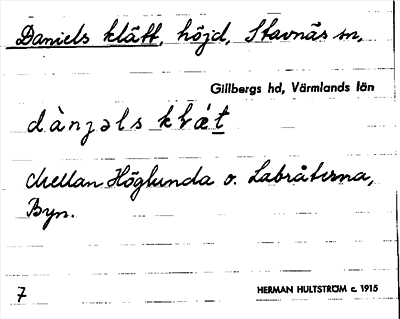 Daniels klätt, höjd, Stavnäs sn,
Gillbergs hd, Värmlands län
dànʒəls
Mellan Höglunda o. Labråterna,
Byn.
7
HERMAN HULTSTRÖM c. 1915